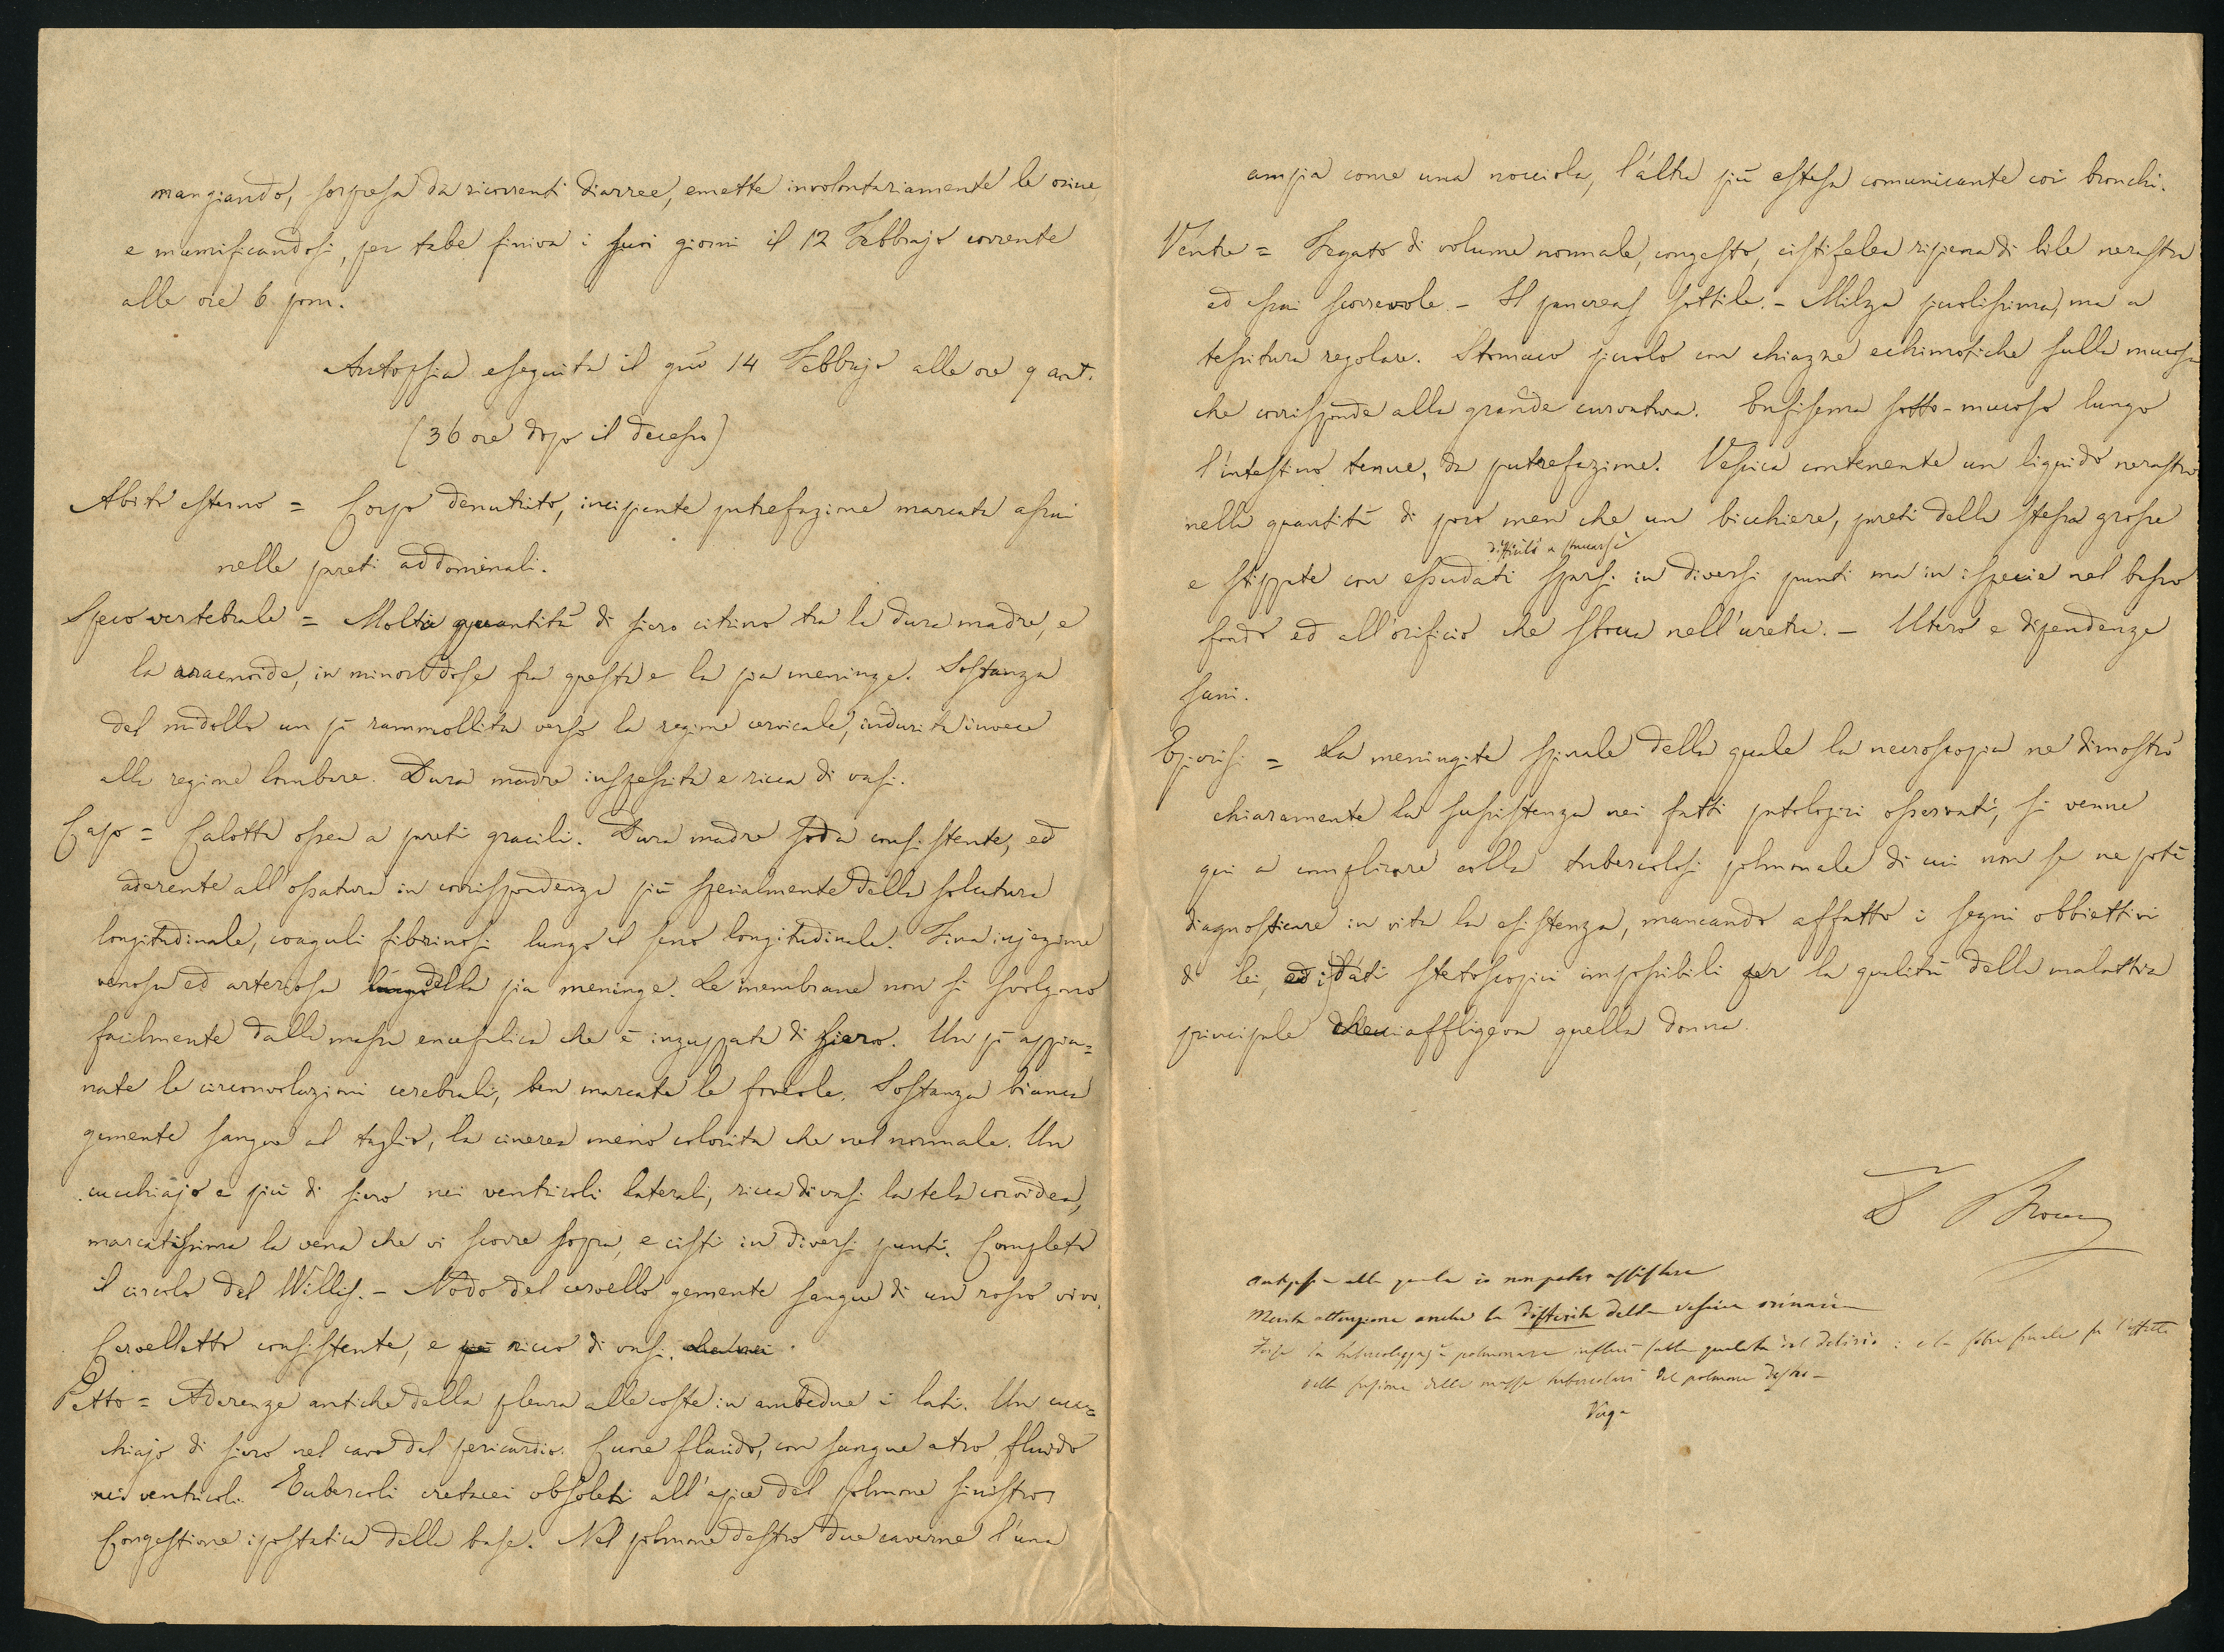 mangiando, sorpresa da ricorrenti diarree, emette involontariamente le orine,
e mumificandosi, per tabe finiva i suoi giorni il 12 Febbrajo corrente
alle ore 6 pom.
Autopsia eseguita il gno 14 Febbrajo alle ore 9 ant.
(36 ore dopo il decesso)
Abito esterno = Corpo denutrito, incipiente putrefazione marcata assai
nelle pareti addominali.
Speco vertebrale = Molta quantità di siero citrino tra la dura madre, e
la aracnoide, in minor dose fra questa e la pia meninge. Sostanza
del midollo un pò rammollita verso la regione cervicale, indurita invece
alla regione lombare. Dura madre inspessita e ricca di vasi.
Capo = Calotta ossea a pareti gracili. Dura madre soda consistente, ed
aderente all'ossatura in corrispondenza più specialmente della solutura
longitudinale, coaguli fibrinosi lungo il seno longitudinale. Fina injezione
venosa ed arteriosa della pia meninge. Le membrane non si svolgono
facilmente dalla massa encefalica che è inzuppata di siero. Un pò appia=
nate le circonvoluzioni cerebrali, ben marcate le Sostanza bianca
gemente sangue al taglio, la cinerea meno colorita che nel normale. Un
cucchiajo e più di siero nei ventricoli laterali, ricca di vasi la tela coroidea,
marcatissima la vena che vi scorre sopra, e cisti in diversi punti. Completo
il circolo del Willis. – Nodo del cervello gemente sangue di un rosso vivo.
Cervelletto consistente, e ricco di vasi.
Petto = Aderenze antiche della pleura alle coste in ambedue i lati. Un cuc=
chiajo di siero nel cavo del pericardio. Cuore flacido, con sangue atro, fluido
nei ventricoli. Tubercoli cretacei obsoleti all'apice del polmone sinistro,
Congestione ipostatica della base. Nel polmone destro due caverne l'una
ampia come una nocciola, l'altra più estesa comunicante coi bronchi.
Ventre = Fegato di volume normale, congesto, cistifelea ripiena di bile nerastra
ed assai scorrevole. – Il pancreas sottile. – Milza piccolissima, ma a
tessitura regolare. Stomaco piccolo con chiazze echimosiche sulla mucosa
che corrisponde alla grande curvatura. Enfisema sotto-mucoso lungo
l'intestino tenue, da putrefazione. Vessica contenente un liquido nerastro
nella quantità di poco men che un bicchiere, pareti della stessa grosse
difficili a staccarsi
e stippate con essudati sparsi in diversi punti ma in ispecie nel basso
fondo ed all'orificio che sbocca nell'uretra. – Utero e dipendenze
sani.
Epicrisi = La meningite spinale della quale la necroscopia ne dimostrò
chiaramente la sussistenza nei fatti patologici osservati, si venne
qui a complicare colla tubercolosi polmonale di cui non se ne potè
diagnosticare in vita la esistenza, mancando affatto i segni obbiettivi
di lei, ed i dati stetoscopici impossibili per la qualità della malattia
principale che affligeva quella donna.
Autopsia alla quale io non potei assistere
Merita attenzione anche la difterite della vessica orinaria
Forse la polmonare influì sulla qualità del delirio: e la febre finale fu l'effetto
della fusione delle masse tubercolari del polmone destro –
Verga